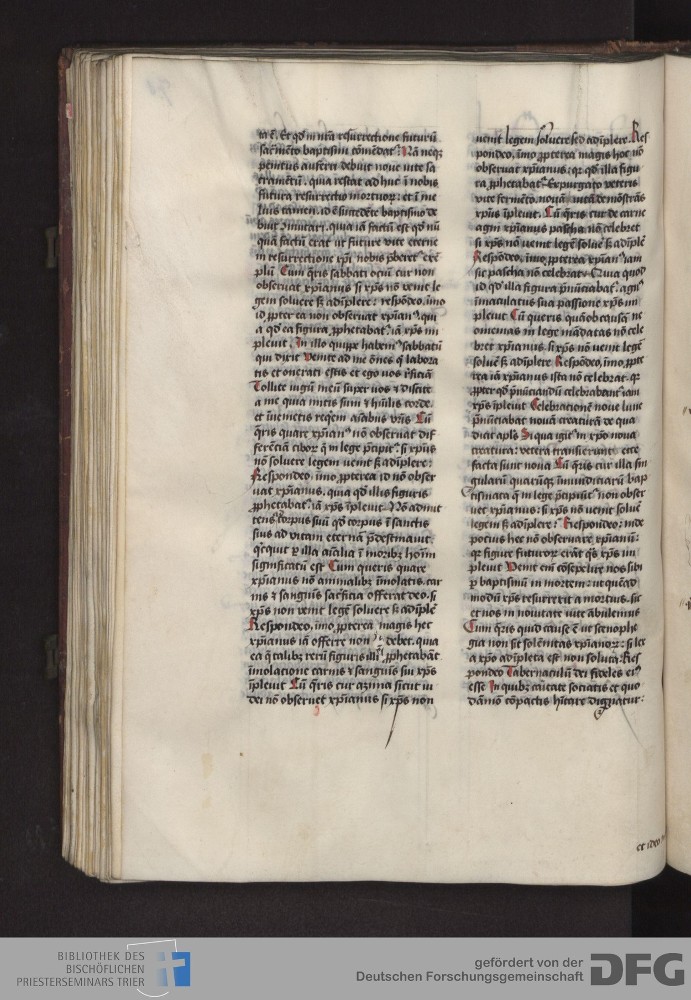 ta ē. Et qd̄ in nr̄a resurrectione futurū
sacͬmēto baptismi cōmendat? Nā neqꝫ
penitus auferri debuit noue vite sa
cramētū. quia restat adhuc ī nobis
futura resurrectio mortuoꝝ: et ī me
lius tamen. id ē succedēte baptismo de
buit ꝯmutari. quia iā factū est qd̄ nū
quā factū erat ut future vite eterne
in resurrectione xp̄i nobis p̄beret᷑ exē
plū Cum q̄ris sabbati ociū cur non
obseruat xp̄ianus si xp̄s nō venit le
gem soluere sꝫ adīplere: respōdeo, īmo
id ꝓpterea non obseruat xp̄ianꝰ qui
a qd̄ ea figura ꝓphetabat᷑ iā xp̄s im
pleuit. In illo quippe habemꝰ sabbatū
qui dixit Venite ad me ōnes q̄ labora
tis et onerati estis et ego vos r̄ficiā
Tollite iugū meū super vos ⁊ discite
a me quia mitis sum ⁊ hu̅ilis corde
et īuenietis reqͥem aīabus vr̄is Cū
q̄ris quare xp̄ianꝰ nō obseruat dif
ferētiā ciboꝝ q̄ in lege p̄cipit᷑. si xp̄us
nō soluere legem venit sꝫ adīplere:
Respondeo, īmo ꝓpterea id nō obser
uat xp̄ianus. quia qd̄ illis figuris
ꝓphetabat᷑ iā xp̄s īpleuit. Nō admit
tens corpus suū qd̄ corpus ī sanctis
suis ad vitam eternā p̄destinauit
qͥcquit ꝑ illa aīalia ī moribꝫ hoīm
significatū est Cum queris quare
xp̄ianus nō animalibꝫ īmolatis. car
nis ⁊ sanguis sacͬficia offerat deo. si
xp̄s non venit legē soluere sꝫ adīplē
Respondeo, īmo ꝓpterea magis hec
xp̄ianus iā offerre non debet. quia
ea q̄ talibꝫ rerū figuris illi ꝓphetabāt
īmolatione carnis ⁊ sanguis sui xp̄s
īpleuit Cū q̄ris cur azima sicut iu
dei nō obseruet xp̄ianus si xp̄s non
uenit legem soluere sed adīplere. Res
pondeo, īmo ꝓpterea magis hoc nō
obseruat xp̄ianus: qꝛ qd̄ illa figu
ra ꝓphetabat᷑ Expurgato veteris
vite fermēto. nouā vitā demōstrās
xp̄us īpleuit. Cū q̄ris cur de carne
agni xp̄ianus pascha nō celebret
si xp̄s nō uenit legē soluē sꝫ adīplē
Respōdeo, īmo, ꝓpterea xp̄ianꝰ iam
sic pascha nō celebrat Quia quod
id qd̄ illa figura p̄nūciabat. agnꝰ
īmaculatus sua passione xp̄s im
pleuit Cū queris quāobreusq̄ neomenias in lege mādatas nō cele
bret xp̄ianus. si xp̄s nō venit legē
soluē sꝫ adīplere Respōdeo, īmo, ꝓpte
rea iā xp̄ianus ista nō celebrat. qꝛ
ꝓpter qd̄ p̄nūciandū celebrabant᷑ iam
xp̄s īpleuit Celebrationē noue lune
p̄nūciabat nouā creaturā de qua
dicit apl̄s Si qua igit᷑ in xp̄o noua
creatura: vetera transierunt ecce
facta sunt noua Cū q̄ris cur illa sin
gularū quarūqꝫ īmundiciarū bap
tismata q̄ in lege p̄cipiūt᷑ non obser
uet xp̄ianus: si xp̄s nō venit soluē
legem sꝫ adīplere? Respondeo: inde
potius hec nō obseruare xp̄ianū:
qꝛ figure futuroꝝ erāt qͣs xp̄s im
pleuit Venit enī cōsepelire nos sibi
ꝑ baptismū in mortem: ut quēad
modū xp̄s resurrexit a mortuis. sic
et nos in nouitate vite ābulemus
Cum q̄ris quid cause ē ut scenophe
gia non sit solēnitas xp̄ianoꝝ: si lex
a xp̄o adīpleta est non soluta: Res
pondeo Tabernaculū dei fideles eiꝰ
esse In quibꝫ caritate sociatis et quo
dāmō cōpactis hītare dignatur:
et ideo
BIBLIOTHEK DES
BISCHÖFLICHEN
PRIESTERSEMINARS TRIER
gefördert von der
Deutschen Forschungsgemeinschaft
DFG